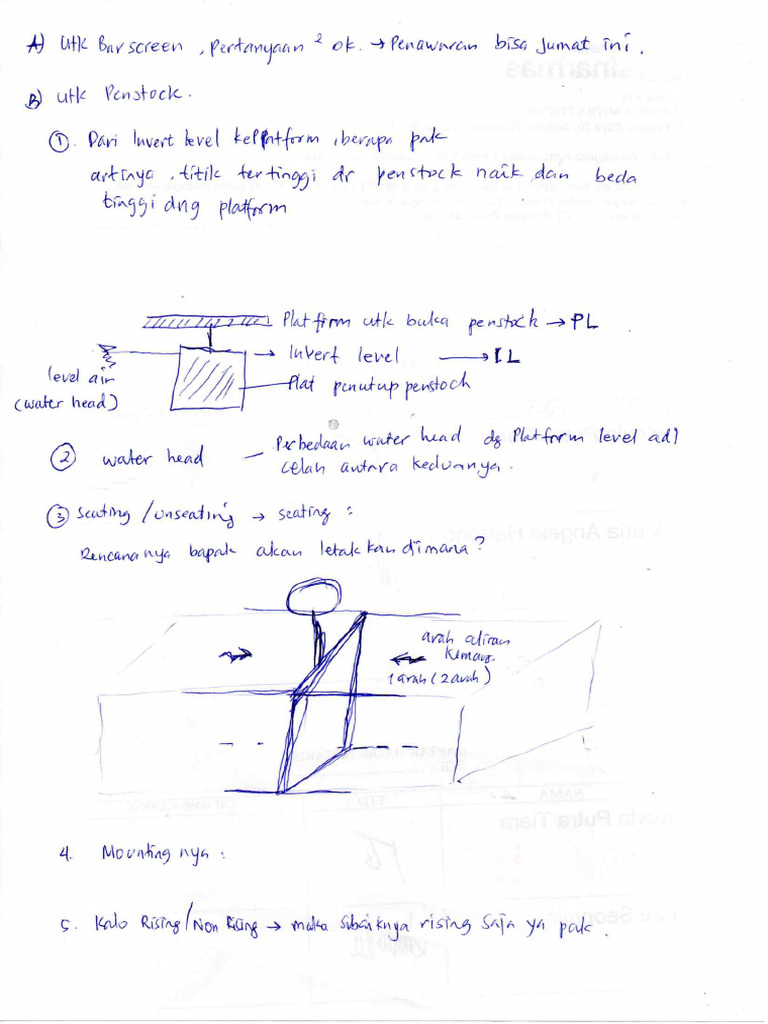 A) Utk Barscreen, pertanyaan² ok. → Penawaran bisa Jumat ini.
B) utk Penstock.
① Dari Invert level ke platform, berapa pak
artinya, titik tertinggi dr penstock naik dan beda
tinggi dng platform
Platfirm utk buka penstock → PL
Invert level → IL
level air
Plat penutup penstock
(water head)
② water head – Perbedaan water head dg Platform level adl
celah antara keduanya.
③ Seating /unseating → seating :
Rencananya bapak akan letakkan dimana?
arah aliran
kemana
1 arah (2 arah)
4. Mounting nya :
5. Kalo Rising/Non Rising → maka sibaiknya rising saja ya pak.